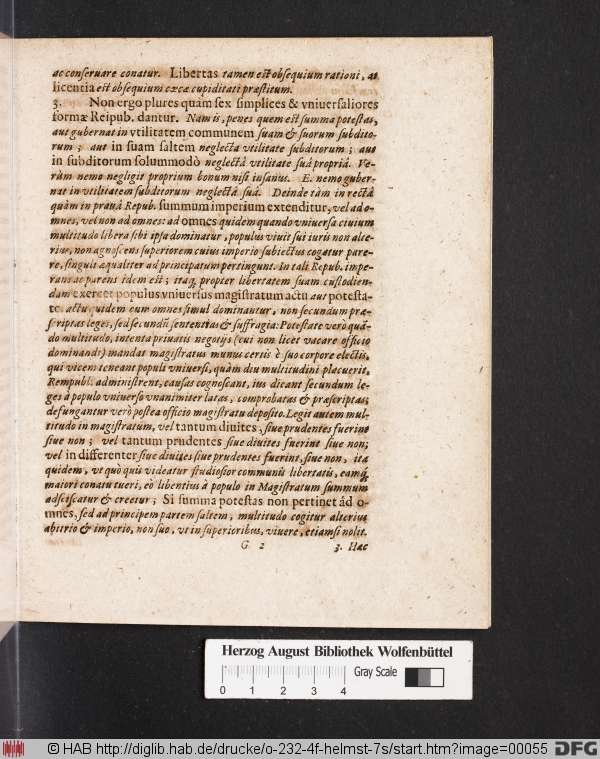 ac conseruare conatur. Libertas tamen est obsequium rationi, at
licentia est obsequium cæcæ cupiditati præstitum.
3. Non ergo plures quàm sex simplices & vniuersaliores
formæ Reipub. dantur. Nam is, penes quem est summa potestas,
aut gubernat in vtilitatem communem suam & suorum subdito-
rum; aut in suam saltem neglecta vtilitate subditorum; aut
in subditorum solummodò neglectâ vtilitate suâ propriâ. Ve-
rùm nemo negligit proprium bonum nisi insanus. E. nemo guber-
nat in vtilitatem subditorum neglectâ suâ. Deinde tàm in rectâ
quàm in prauâ Repub. summum imperium extenditur, vel ad o-
mnes, vel non ad omnes: ad omnes quidem quando vniuersa ciuium
multitudo libera sibi ipsa dominatur, populus viuit sui iuris non alte-
rius, non agnoscens superiorem cuius imperio subiectus cogatur pare-
re, singuli æqualiter ad principatum pertingunt. In tali Repub. impe-
rans ac parens idem est; itaq; propter libertatem suam custodien-
dam exercet populus vniuersus magistratum actu aut potesta-
te. actu quidem cum omnes simul dominantur, non secundum præ-
scriptas leges, sed secundũ sententias & suffragia: Potestate verò quã-
do multitudo, intenta priuatis negotijs (cui non licet vacare officio
dominandi) mandat magistratus munus certis è suo corpore electis,
qui vicem teneant populi vniuersi, quàm diu multitudini placuerit,
Rempubl. administrent, causas cognoscant, ius dicant secundum le-
ges à populo vniuerso vnanimiter latas, comprobatas & præscriptas;
defungantur verò postea officio magistratu deposito. Legit autem mul-
titudo in magistratum, vel tantum diuites, siue prudentes fuerint
siue non; vel tantum prudentes siue diuites fuerint siue non;
vel indifferenter siue diuites siue prudentes fuerint, siue non, ita
quidem, vt quò quis videatur studiosior communis libertatis, eamq́;
maiori conatu tueri, eò libentius à populo in Magistratum summum
adsciscatur & creetur; Si summa potestas non pertinet ád o-
mnes, sed ad principem partem saltem, multitudo cogitur alterius
abitrio & imperio, non suo, vt in superioribus, viuere, etiamsi nolit.
G 2 3. Hæc
Herzog August Bibliothek Wolfenbüttel
Gray Scale
0 1 2 3 4
© HAB http://diglib.hab.de/drucke/o-232-4f-helmst-7s/start.htm?image=00055 DFG